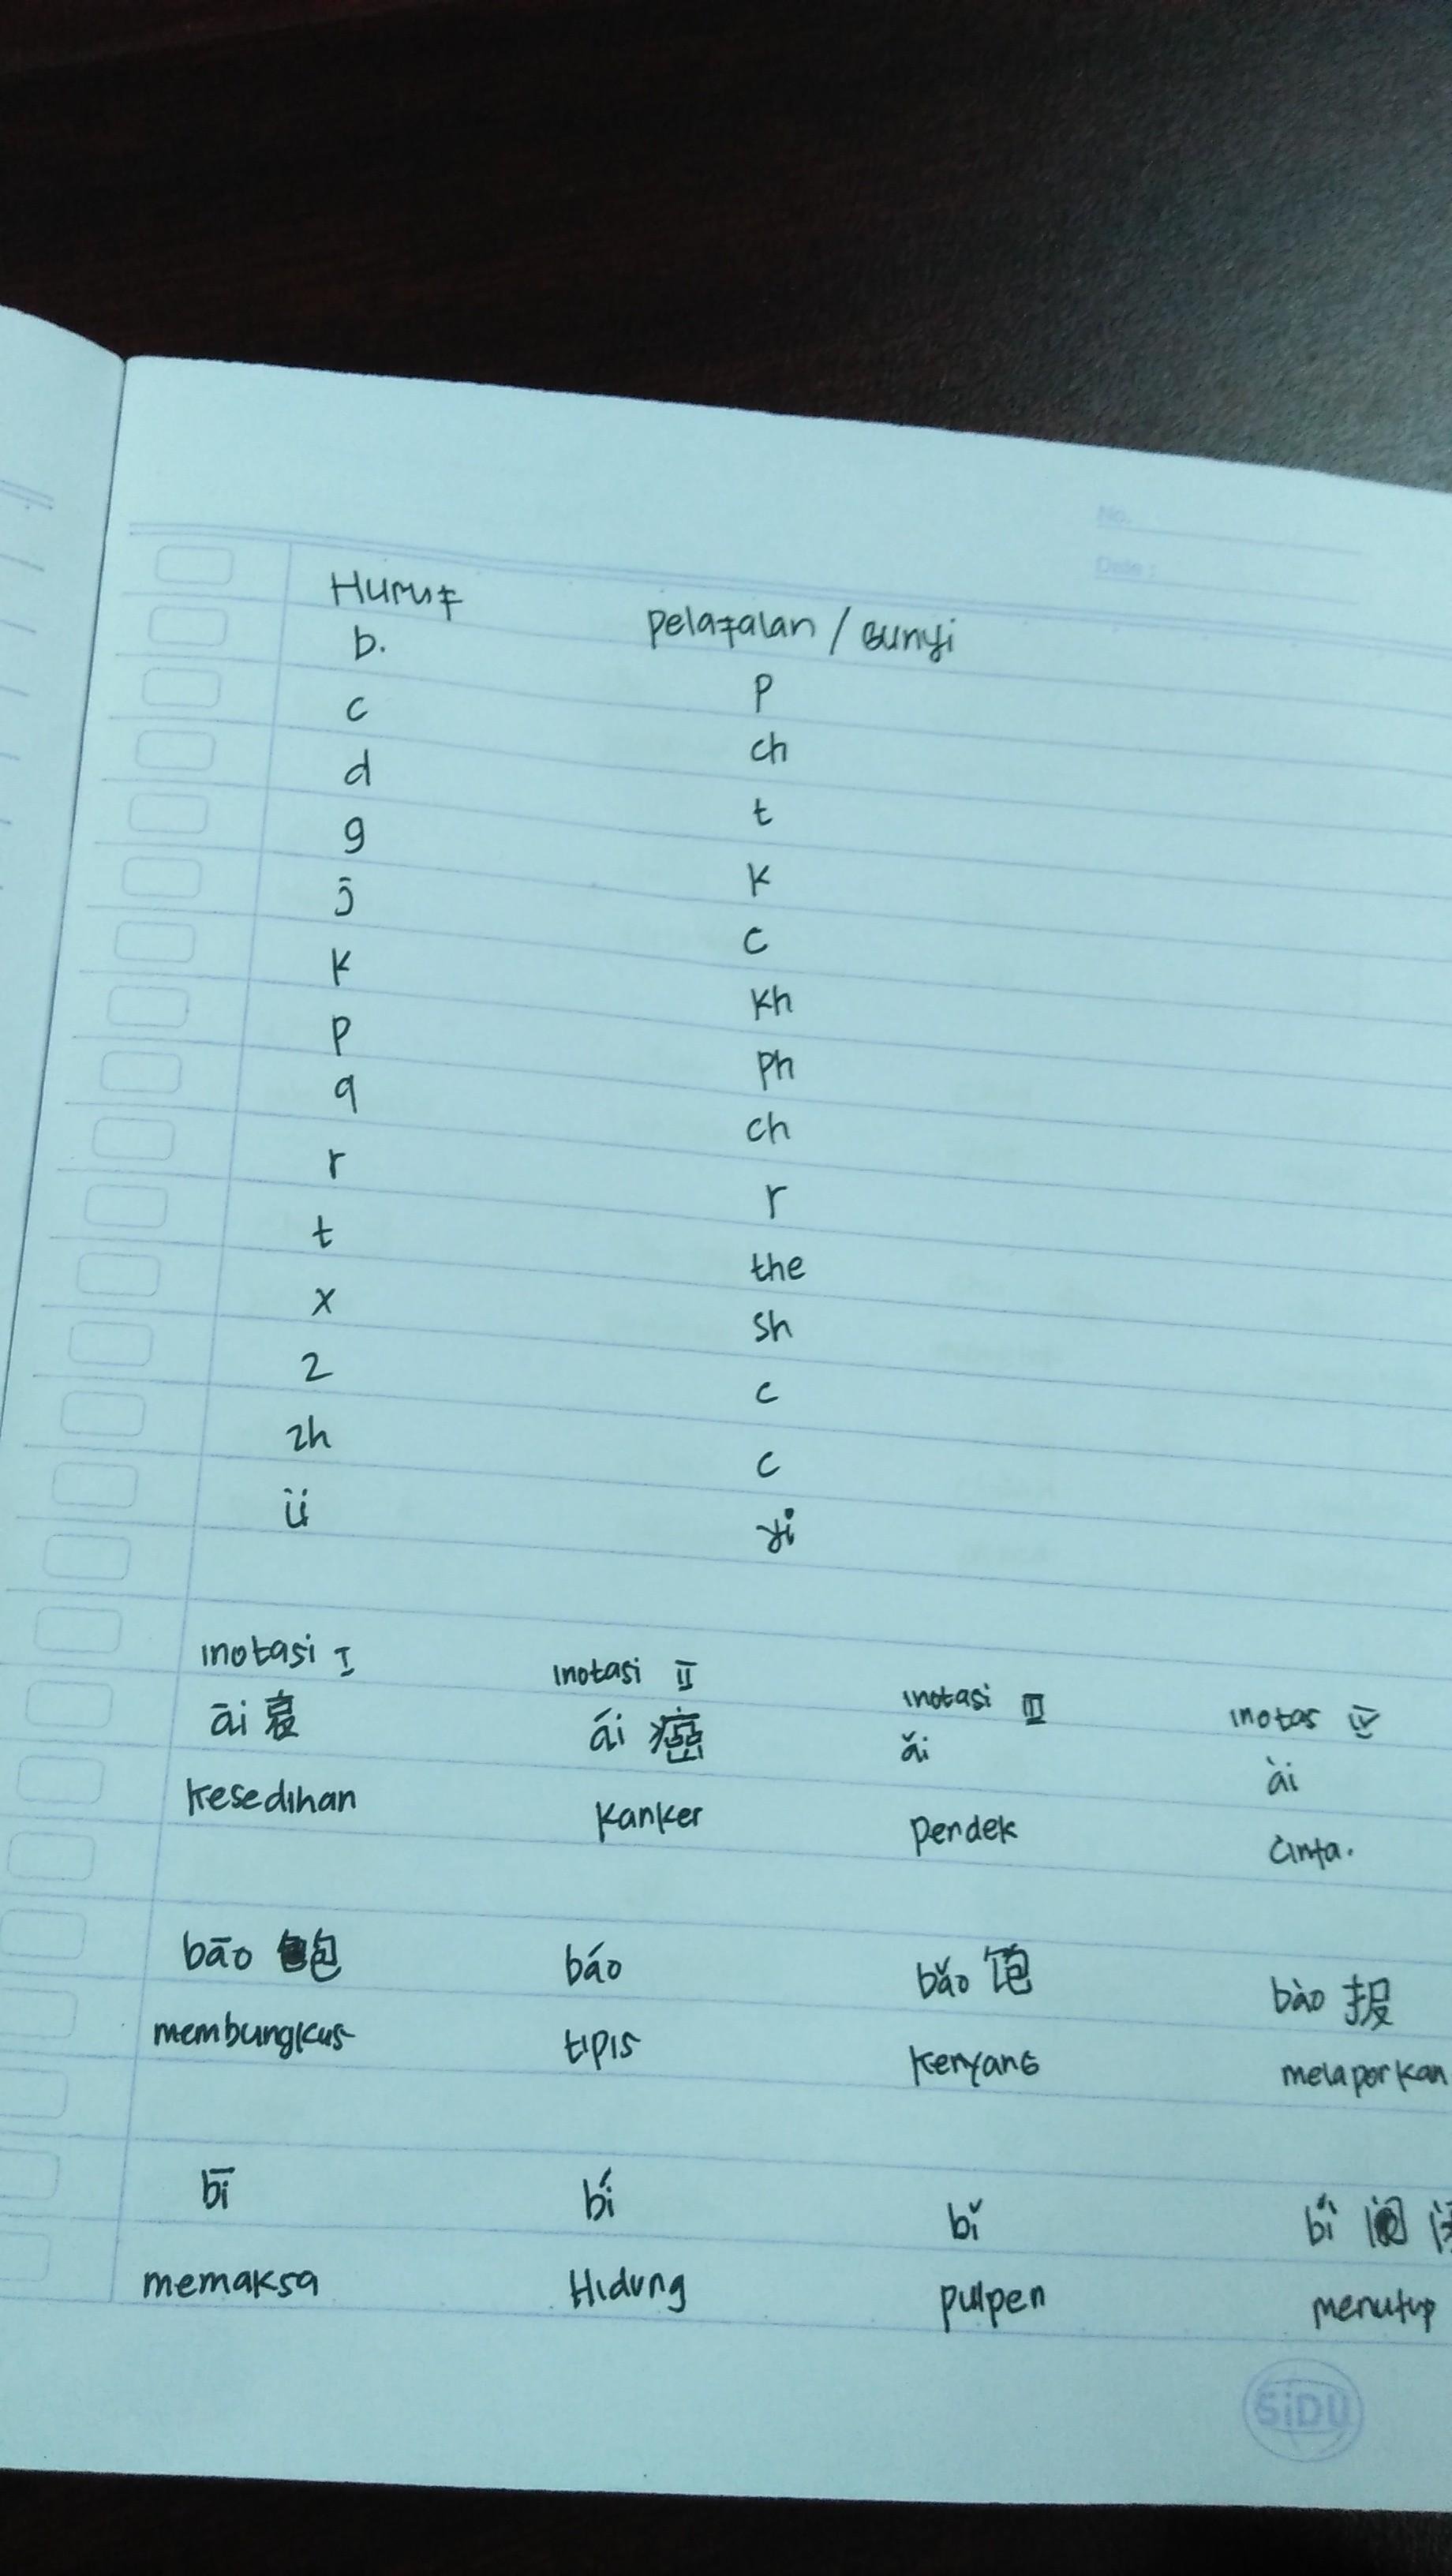 No.
Date :
Huruf pelafalan / Bunyi
b. p
c ch
d t
g k
j c
k kh
p ph
q ch
r r
t the
x sh
z c
zh c
ü yi
inotasi I inotasi II inotasi III inotas IV
āi 哀 ái 癌 ǎi ài
kesedihan kanker pendek cinta.
bāo 包 báo bǎo 饱 bào 报
membungkus tipis kenyang melaporkan
bī bí bǐ bì
memaksa Hidung pulpen menutup
SiDU